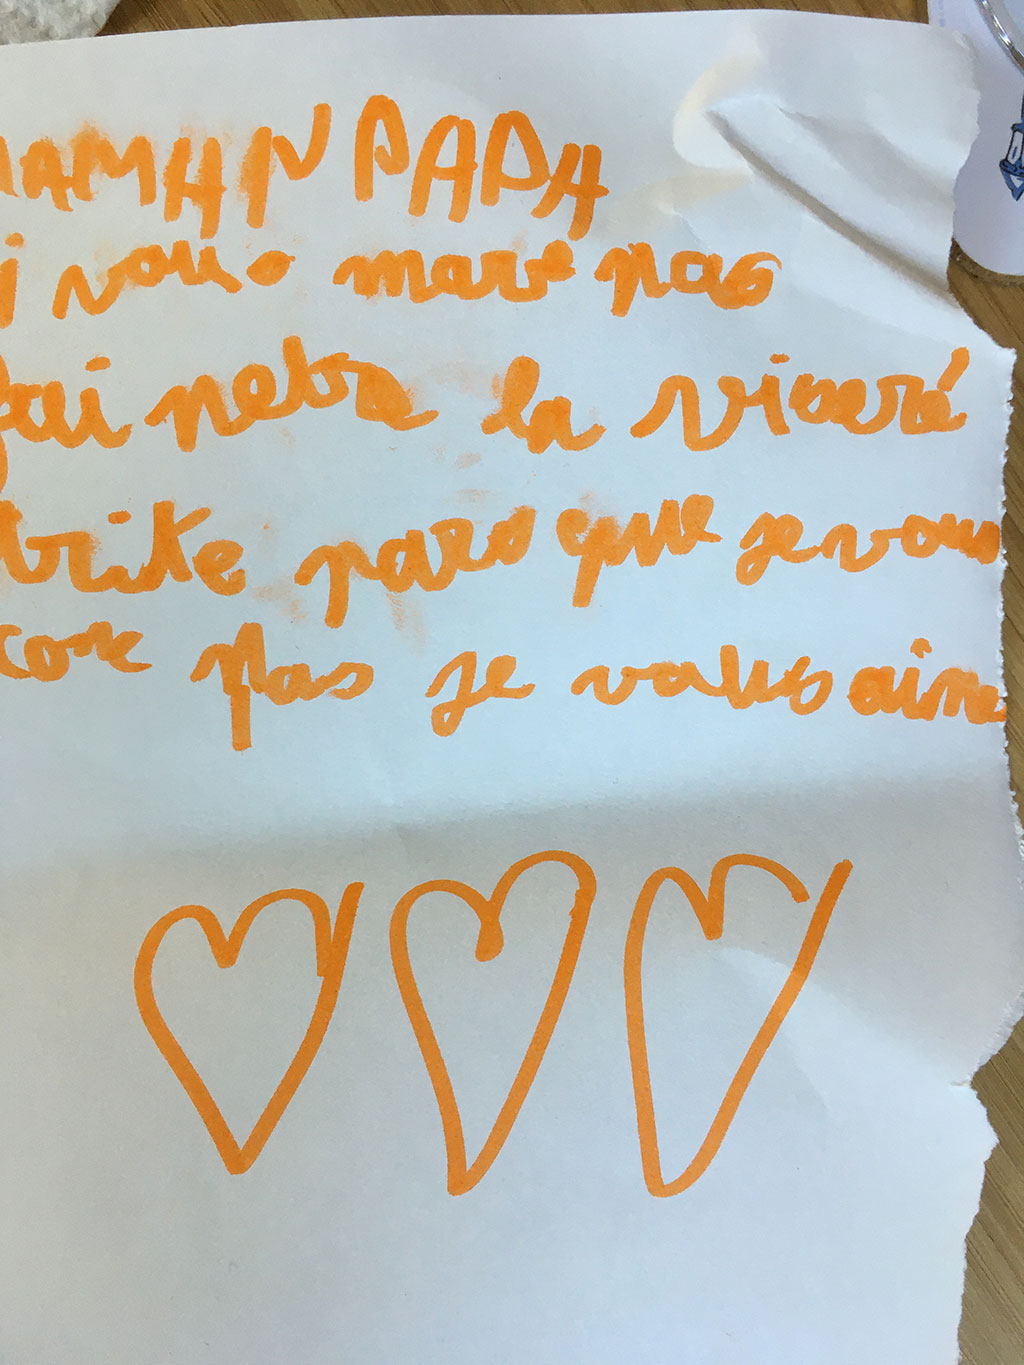 MAMAN PAPA
i vous mare pas
jai nebe la viseré
trite pars que je vous
core pas je vous aime